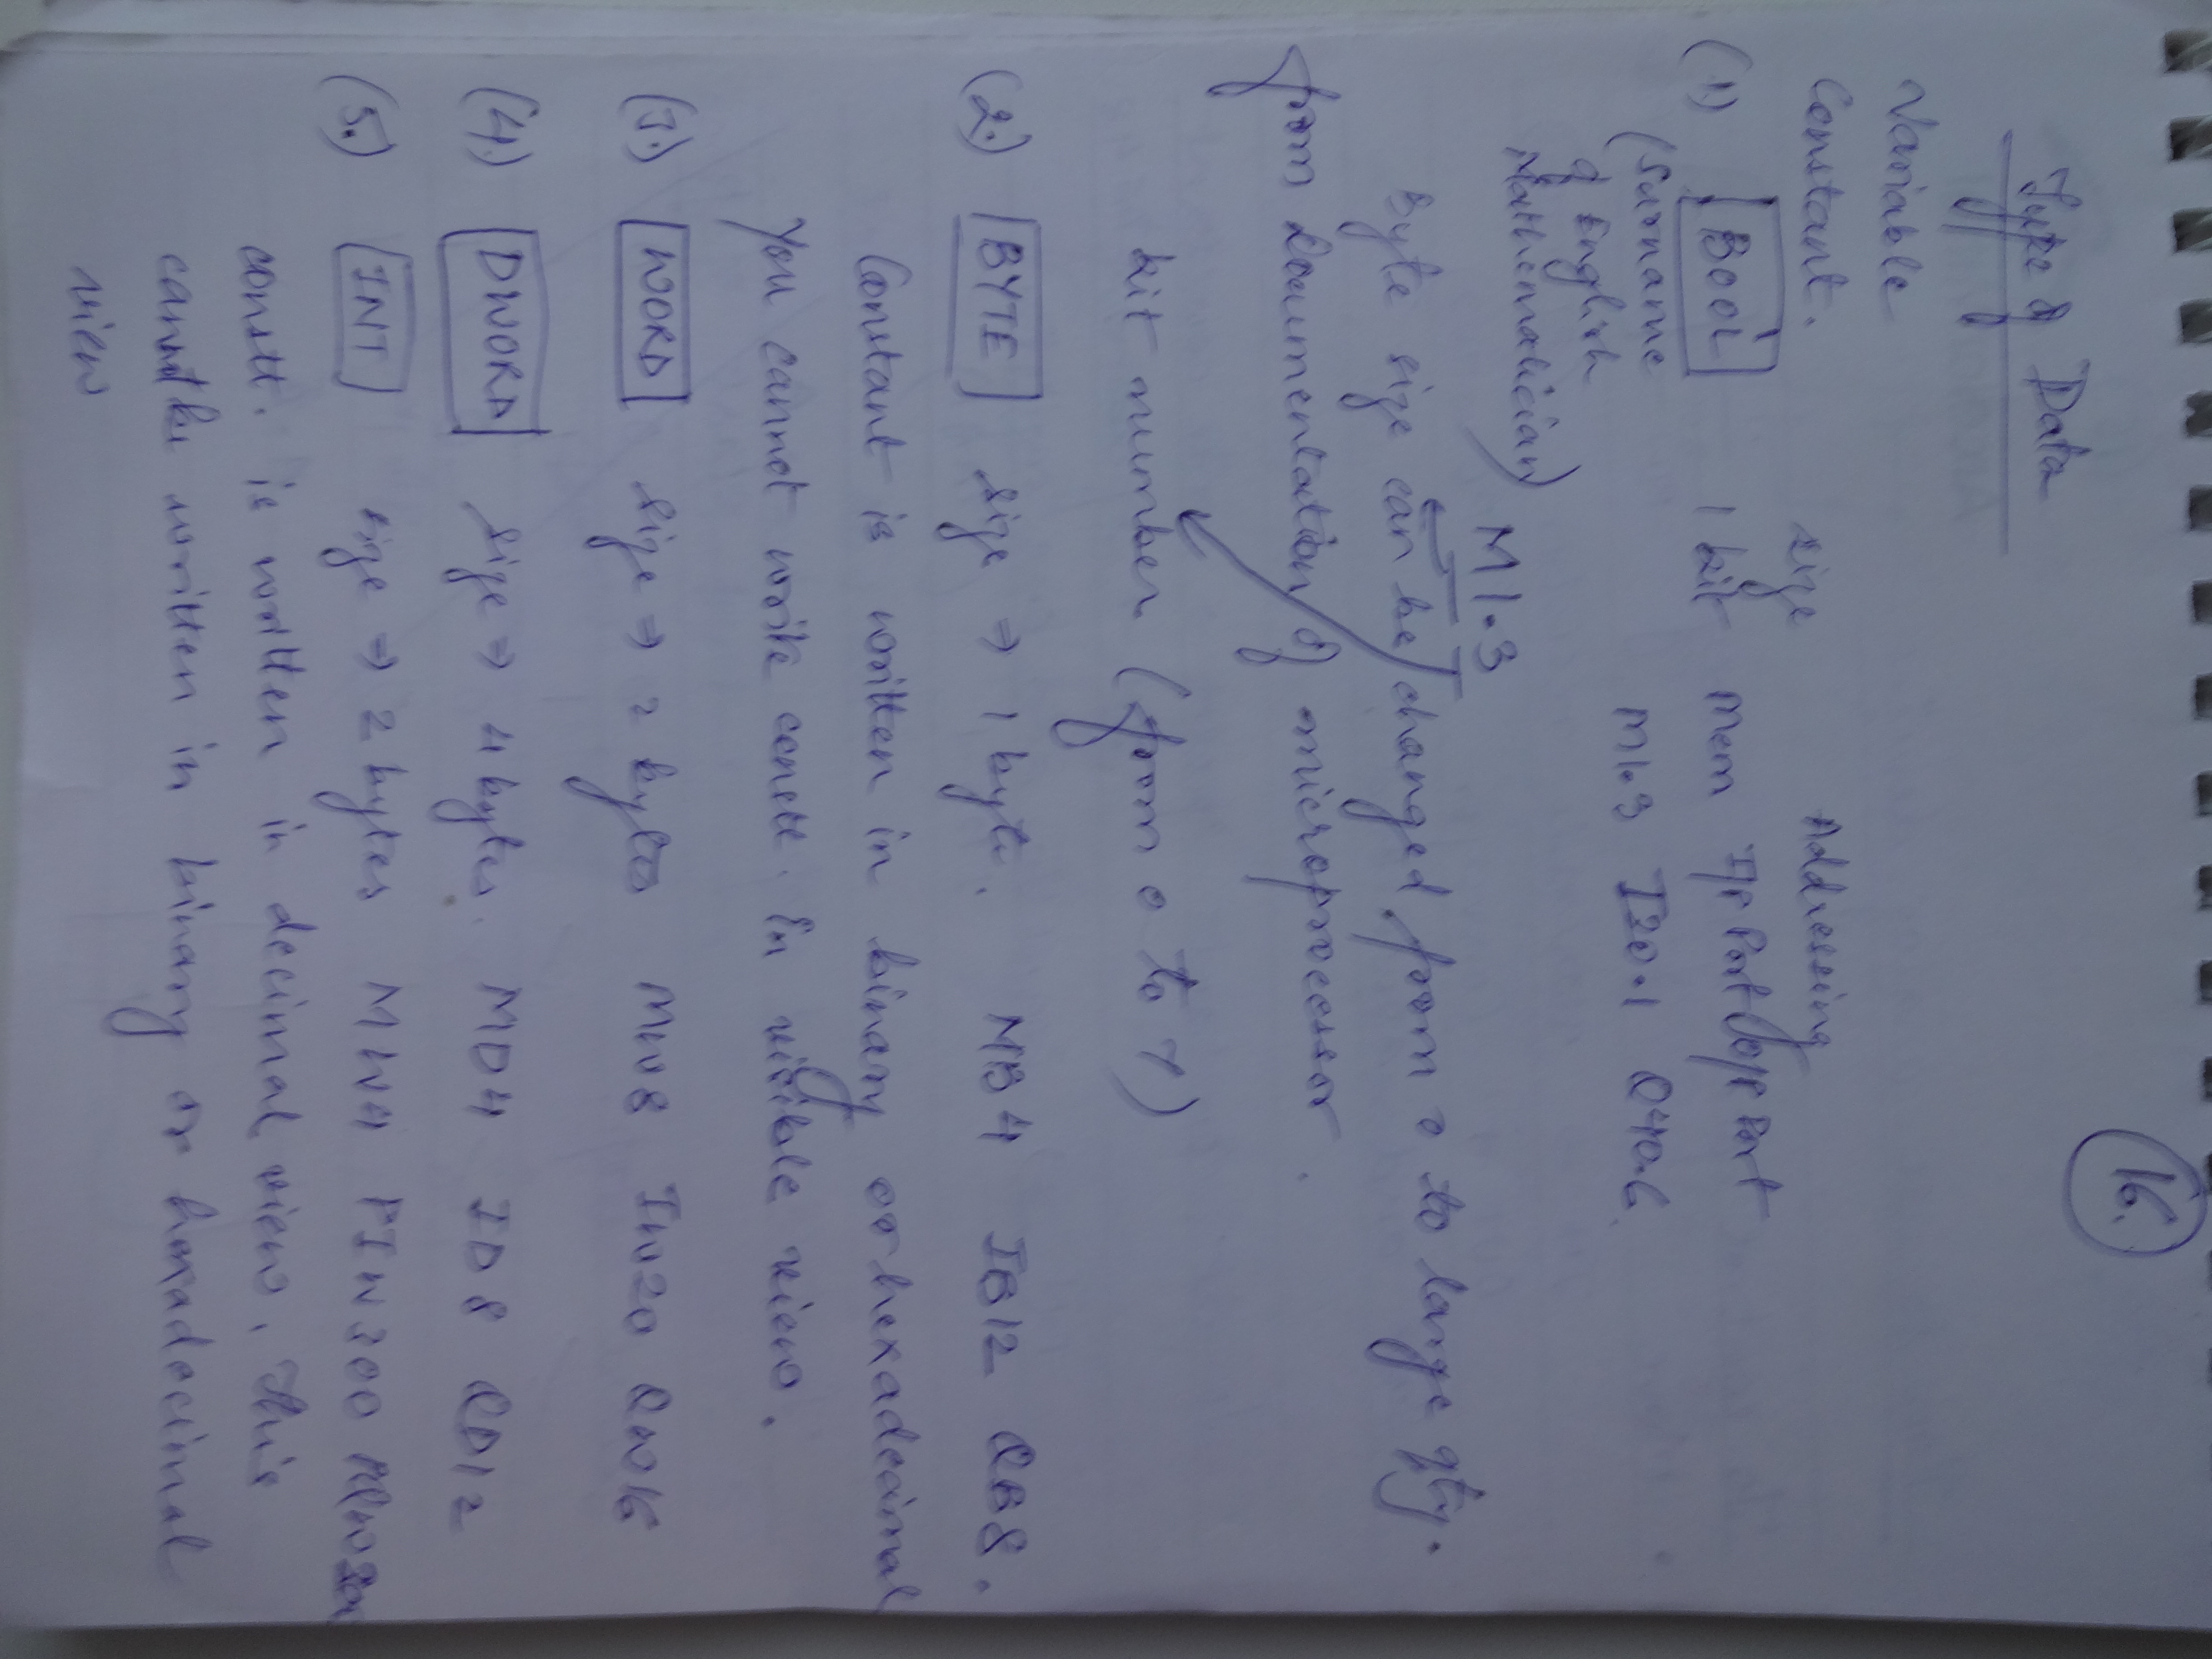 16.
Type of Data
Variable
Constant.
size Addressing
(1) BOOL 1 bit Mem I/P Port O/P Port
(Surname M1.3 I20.1 Q40.6
of English
Mathematician)
M1.3
Byte size can be changed from 0 to large qty.
from documentation of microprocessor.
bit number (from 0 to 7)
(2.) BYTE size ⇒ 1 byte. MB4 IB12 QB8.
Constant is written in binary or hexadecimal
You cannot write constt. in visible view.
(3.) WORD size ⇒ 2 bytes MW8 IW20 QW16
(4.) DWORD size ⇒ 4 bytes. MD4 ID8 QD12
(5.) INT size ⇒ 2 bytes MW4 PIW300
constt. is written in decimal view. This
cannot be written in binary or hexadecimal
view